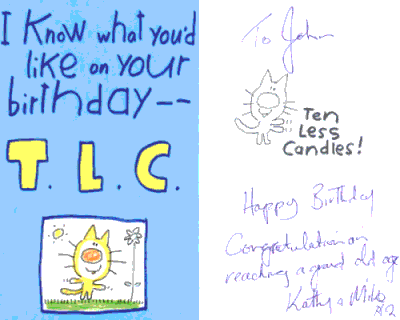 I Know what you'd
like on your
birthday--
T. L. C.
To John
Ten
Less
Candles!
Happy Birthday
Congratulations on
reaching a grand old age
Kathy & Mike